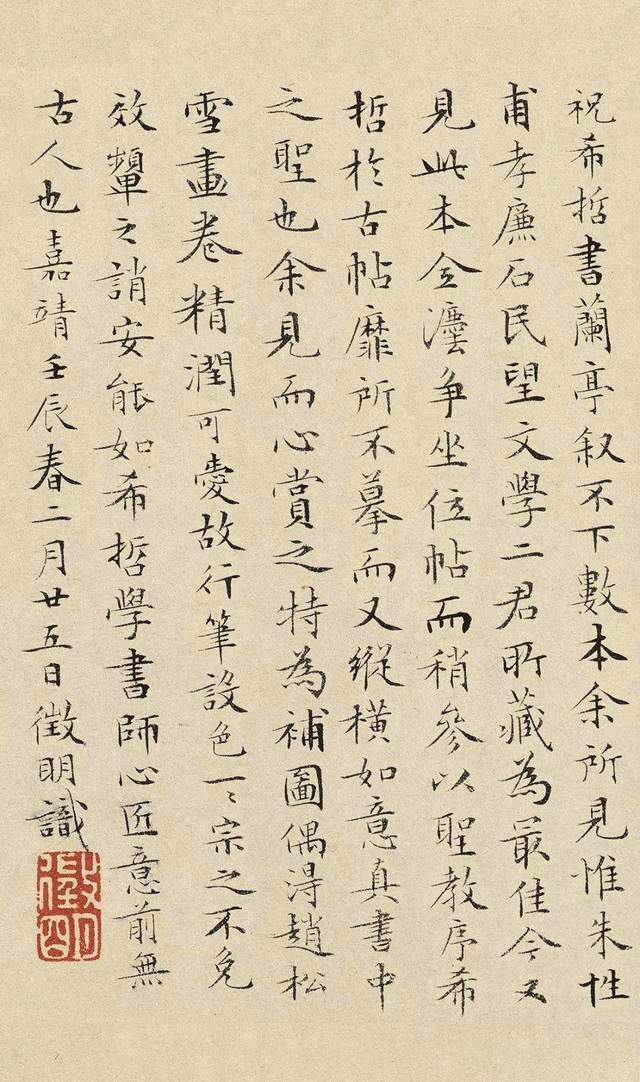 祝希哲書蘭亭叙不下數本余所見惟朱性
甫孝廉石民望文學二君所藏為最佳今又
見此本全瀍爭坐位帖而稍參以聖教序希
哲於古帖靡所不摹而又縱橫如意真書中
之聖也余見而心賞之特為補圖偶淂趙松
雪畫卷精潤可愛故行筆設色一〻宗之不免
效顰之誚安能如希哲學書師心匠意前無
古人也嘉靖壬辰春二月廿五日徵明識
徵明